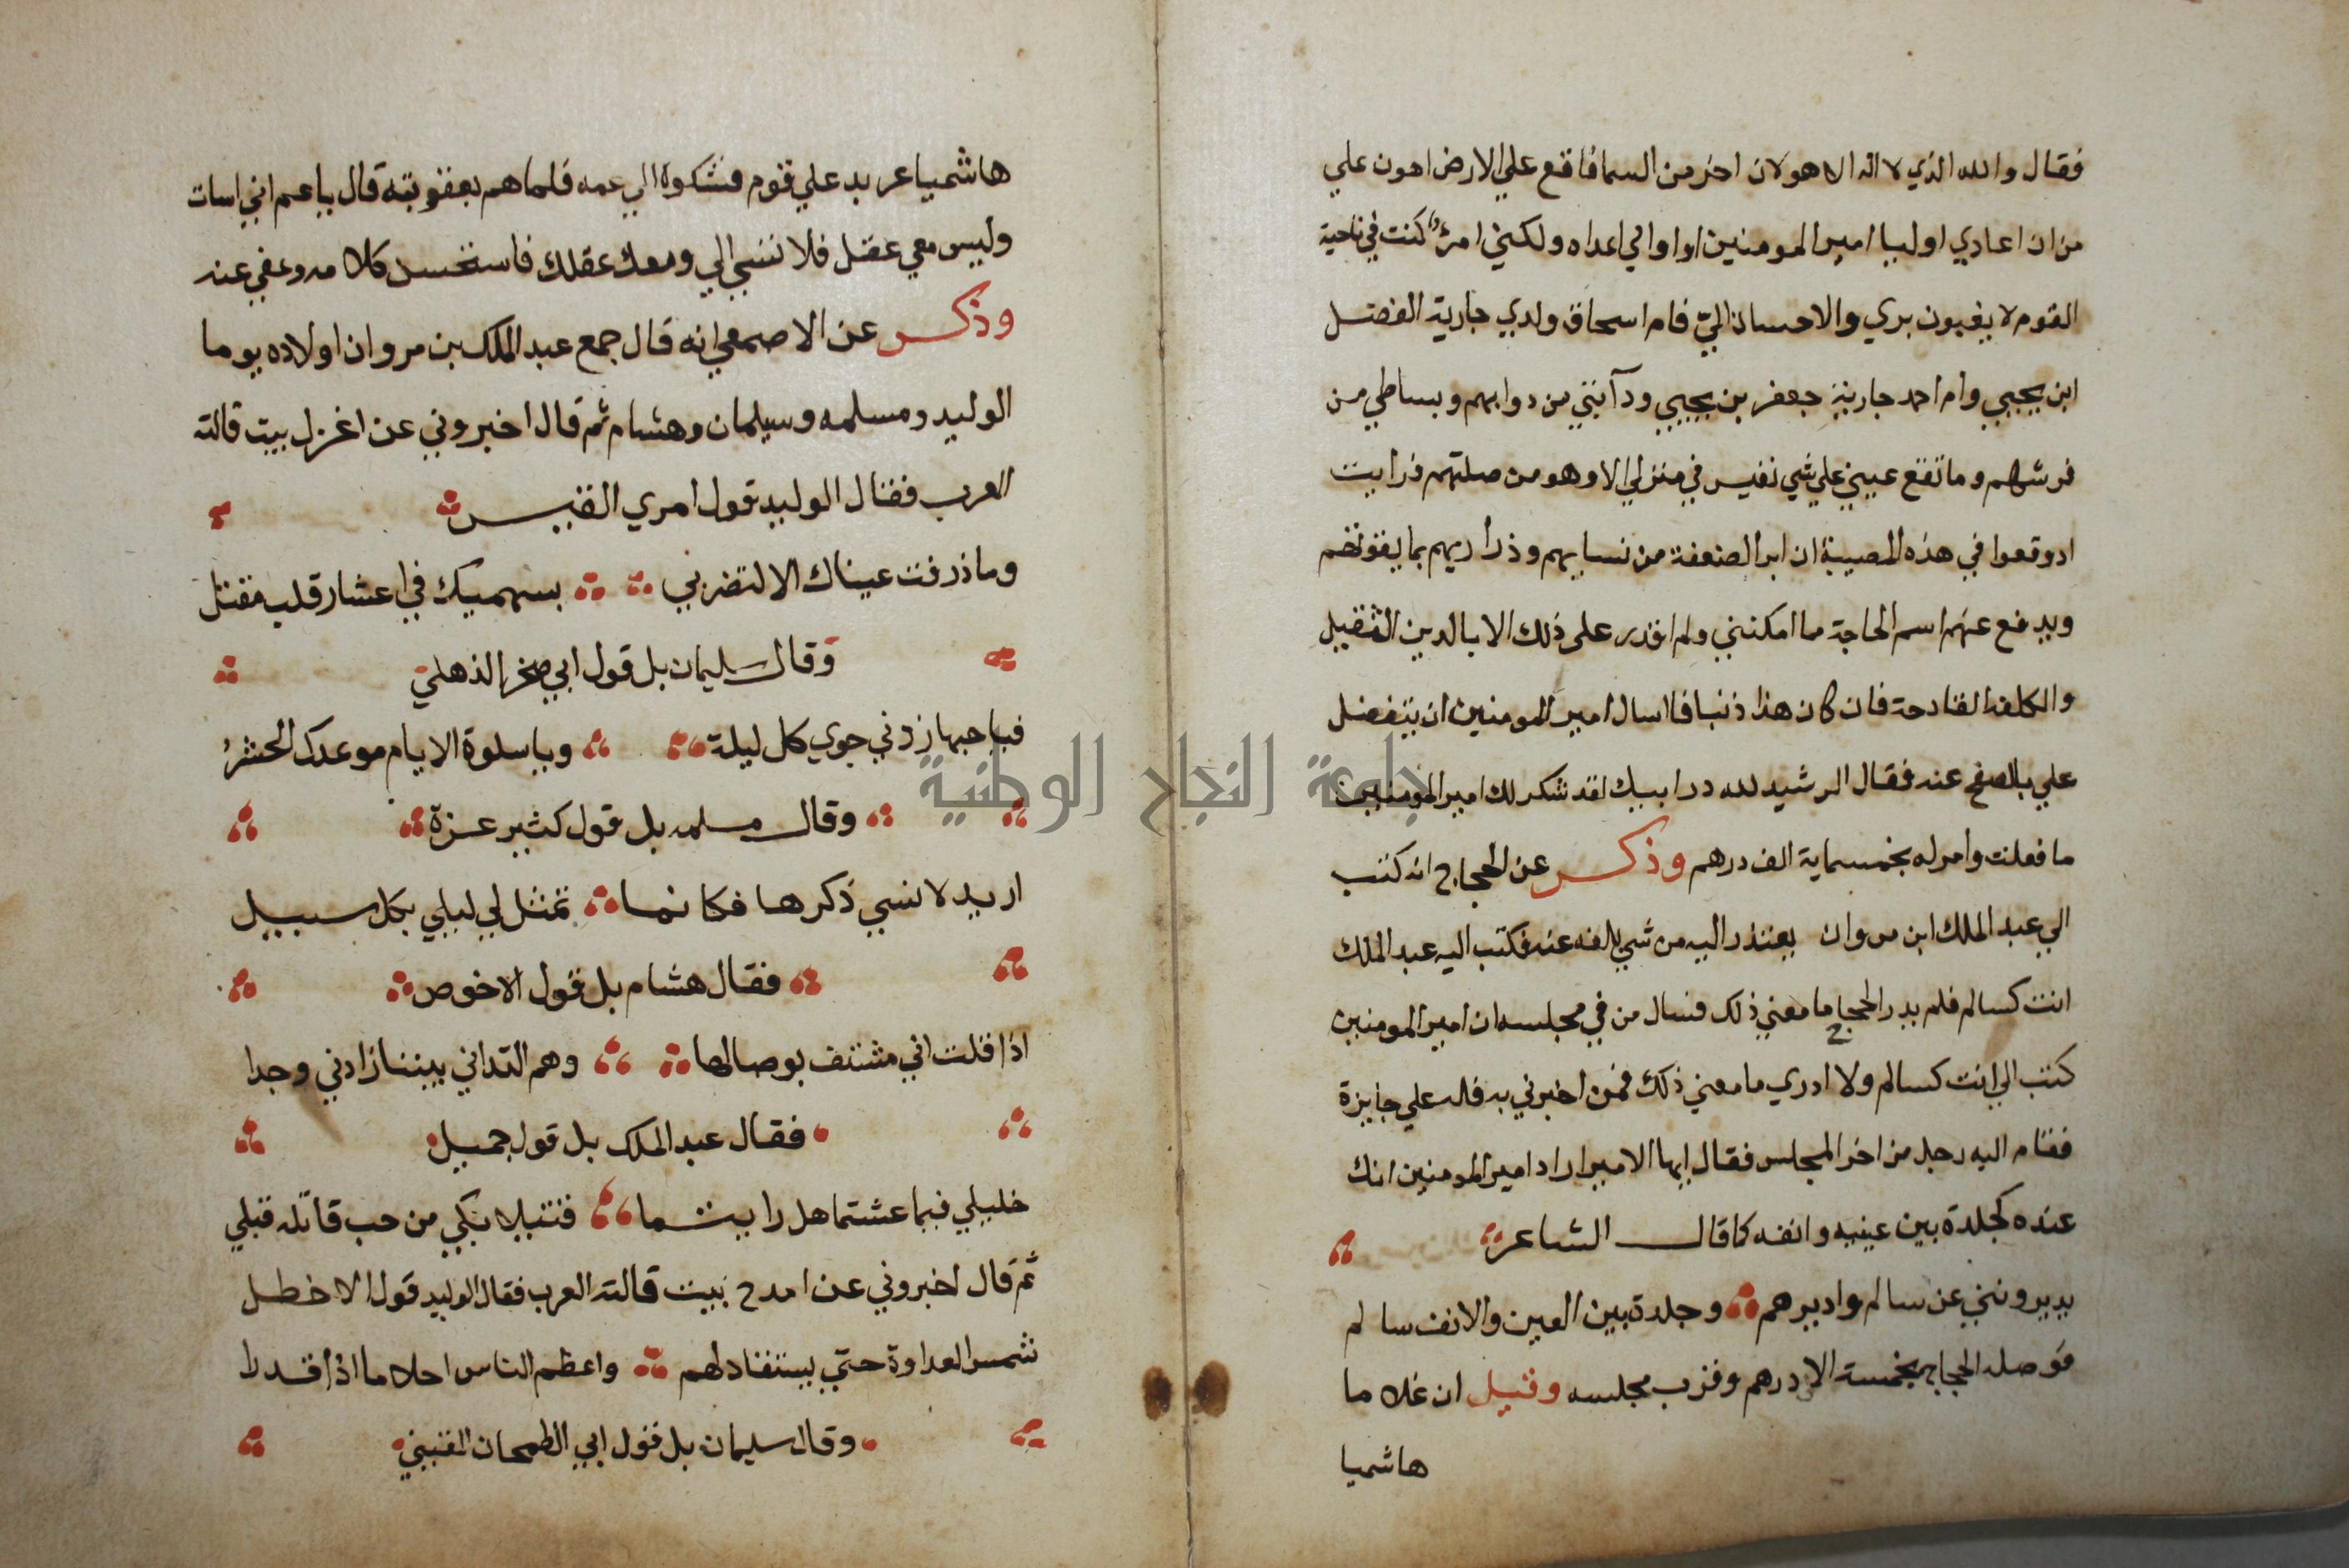 فقال والله الذي لا اله الا هو لان اخر من السما فاقع علي الارض اهون علي
من ان اعادي اوليا امير المومنين او اوالي اعداه ولكني امرؤ كنت في ناحية
القوم لا يغبون بري والاحسان اليّ فام اسحاق ولدي جارية الفضل
ابن يحيي وام احمد جارية جعفر بن يحيي ودآبتي من دوابهم وبساطي من
فرشهم وما تقع عيني علي شي نفيس في منزلي الا وهو من صلتهم فرايت
اد وقعوا في هذه المصيبة ان ابر الضعفة من نسايهم وذراريهم بما يقوتهم
ويدفع عنهم اسم الحاجة ما امكنني ولم اقدر علي ذلك الا بالدين الثقيل
والكلف الفادحة فان كان هذا ذنبا فاسال امير المومنين ان يتفضل
علي بالصفح عنه فقال الرشيد لله در ابيك لقد شكر لك امير المومنين
ما فعلت وامر له بخمسماية الف درهم وذكر عن الحجاج انه كتب
الي عبد الملك ابن مروان يعتذر اليه من شي بلغه عنه فكتب اليه عبد الملك
انت كسالم فلم يدر الحجاج ما معني ذلك فسال من في مجلسه ان امير المومنين
كتب الي انت كسالم ولا ادري ما معني ذلك فمن اخبرني به فله علي جايزة
فقام اليه رجل من اخر المجلس فقال ايها الامير اراد امير المومنين انك
عنده كجلدة بين عينيه وانفه كما قال الشاعر
يديرونني عن سالم وادبرهم وجلدة بين العين والانف سالم
فوصله الحجاج بخمسة الاف درهم وقرب مجلسه وقيل ان غلاما
هاشميا
هاشميا عربد علي قوم فشكوه الي عمه فلما هم بعقوبته قال يا عم اني اسات
وليس معي عقل فلا تسي الي ومعك عقلك فاستحسن كلامه وعفي عنه
وذكر عن الاصمعي انه قال جمع عبد الملك بن مروان اولاده يوما
الوليد ومسلمه وسليمان وهشام ثم قال اخبروني عن اغزل بيت قالته
العرب فقال الوليد قول امري القيس
وما ذرفت عيناك الا لتضربي بسهميك في اعشار قلب مقتل
وقال سليمان بل قول ابي صخر الذهلي
فيا حبها زدني جوي كل ليلة ويا سلوة الايام موعدك الحشرُ
وقال مسلمه بل قول كثير عزة
اريد لانسي ذكرها فكانما تمثل لي ليلي بكل سبيل
فقال هشام بل قول الاخوص
اذا قلت اني مشتف بوصالها وهم التداني بيننا زادني وجدا
فقال عبد الملك بل قول جميل
خليلي فيما عشتما هل رايتما قتيلا بكي من حب قاتله قبلي
ثم قال اخبروني عن امدح بيت قالته العرب فقال الوليد قول الاخطل
شمس العداوة حتي يستقاد لهم واعظم الناس احلاما اذا قدرا
وقال سليمان بل قول ابي الطمحان القيني
جامعة النجاح الوطنية